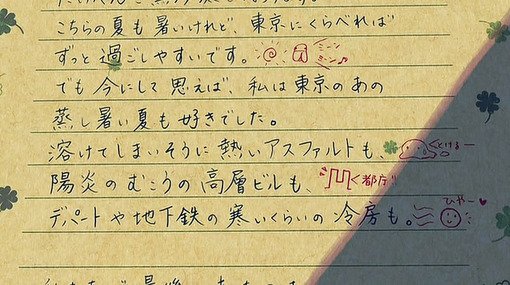 こちらの夏も暑いけれど、東京にくらべれば
ずっと過ごしやすいです。 ミーン ミーン♪
でも今にして思えば、私は東京のあの
蒸し暑い夏も好きでした。
溶けてしまいそうに熱いアスファルトも、 とけるー
陽炎のむこうの高層ビルも、 都庁!!
ひやー♥
デパートや地下鉄の寒いくらいの冷房も。